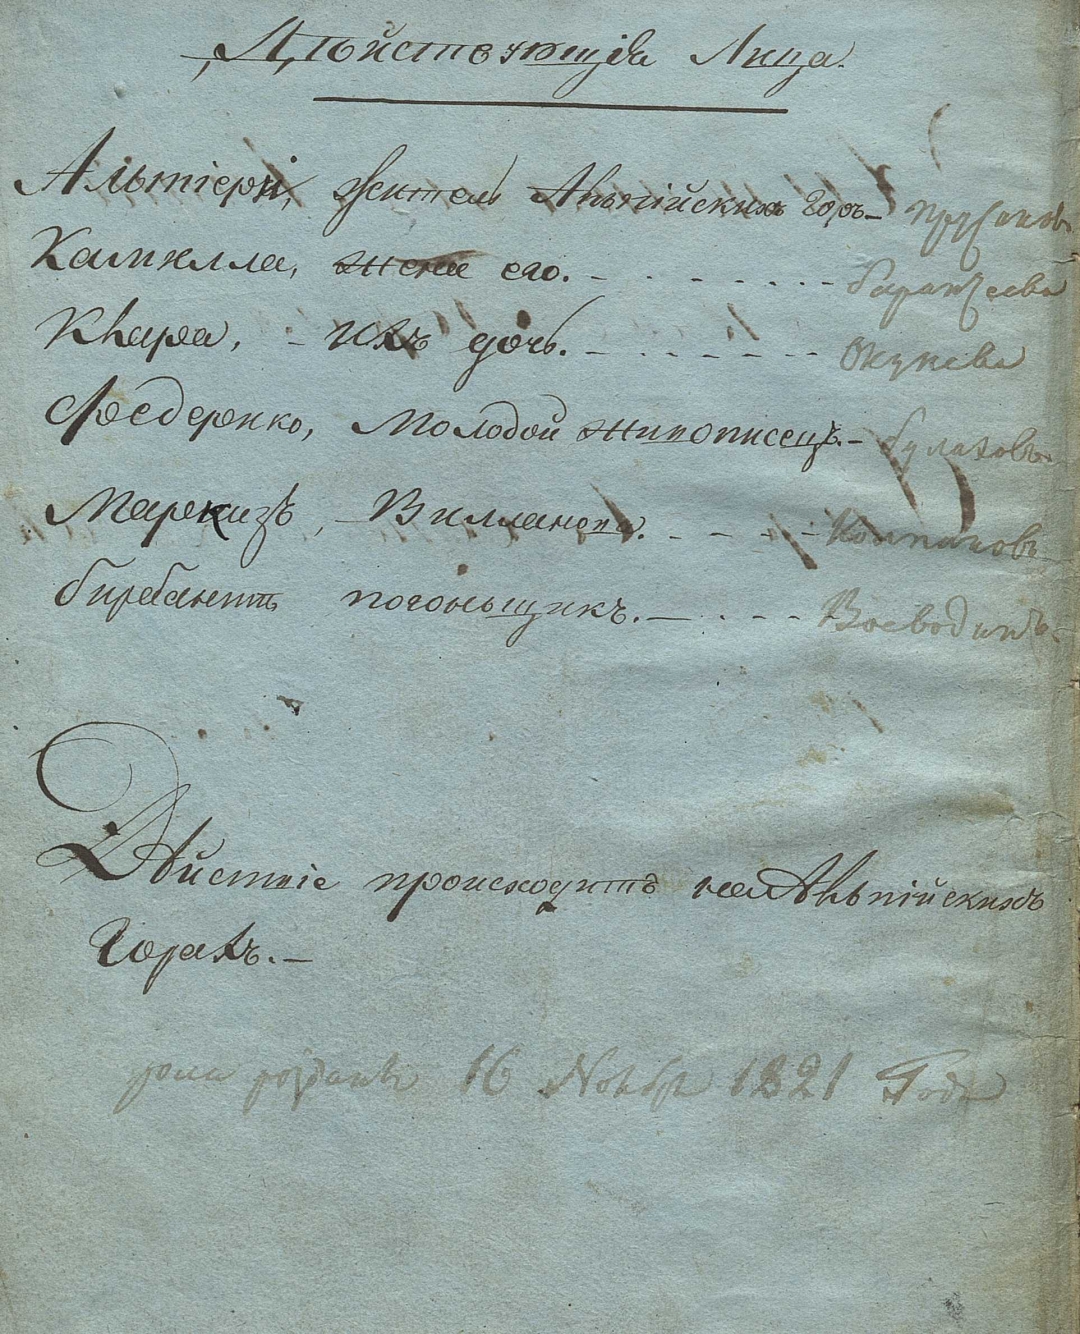 Дѣйствующія Лица.
Альтіери, житель Альпійскихъ Горъ — Прусаковъ
Камилла, жена его. - - - - - - - - Баранчеева
Клара, - ихъ дочь. - - - - - - - - Окунева
Федерико, Молодой живописецъ. - Булаховъ.
Маркизъ, Виллано. - - - - - - Колпаковъ
Бирбантъ погоньщикъ. — - - - - Воеводинъ.
Дѣйствіе происходитъ на Альпійскихъ
Горахъ. —
розданы 16 Ноября 1821 Года